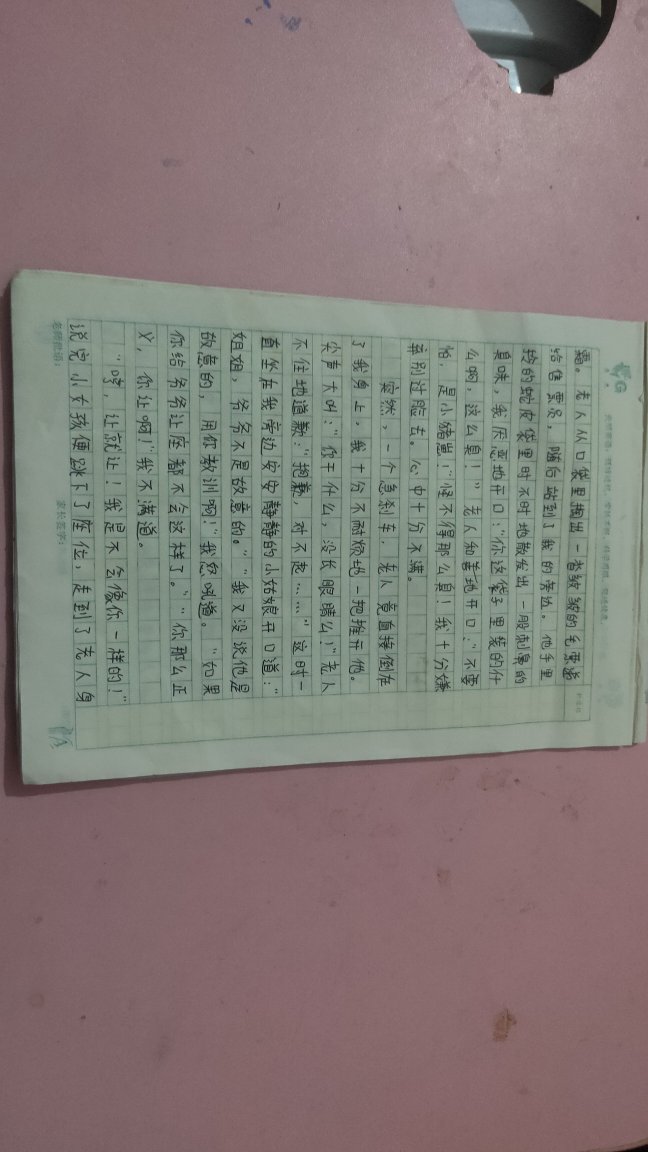 霜。老人从口袋里掏出一沓皱皱的毛票递
给售票员，随后站到了我的旁边。他手里
拎的蛇皮袋里时不时地散发出一股刺鼻的
臭味，我厌恶地开口：“你这袋子里装的什
么啊，这么臭！”老人和善地开口：“不要
怕，是小猪崽！”怪不得那么臭！我十分嫌
弃别过脸去。心中十分不满。
突然，一个急刹车，老人竟直接倒在
了我身上，我十分不耐烦地一把推开他。
尖声大叫：“你干什么，没长眼睛么！”老人
不住地道歉：“抱歉，对不起……”这时一
直坐在我旁边安安静静的小姑娘开口道：“
姐姐，爷爷不是故意的。”“我又没说他是
故意的，用你教训啊！”我怒吼道。“如果
你给爷爷让座都不会这样了。”“你那么正
义，你让啊！”我不满道。
“哼，让就让！我是不会像你一样的！”
说完小女孩便跳下了座位，走到了老人身
老师批语：
家长签字：